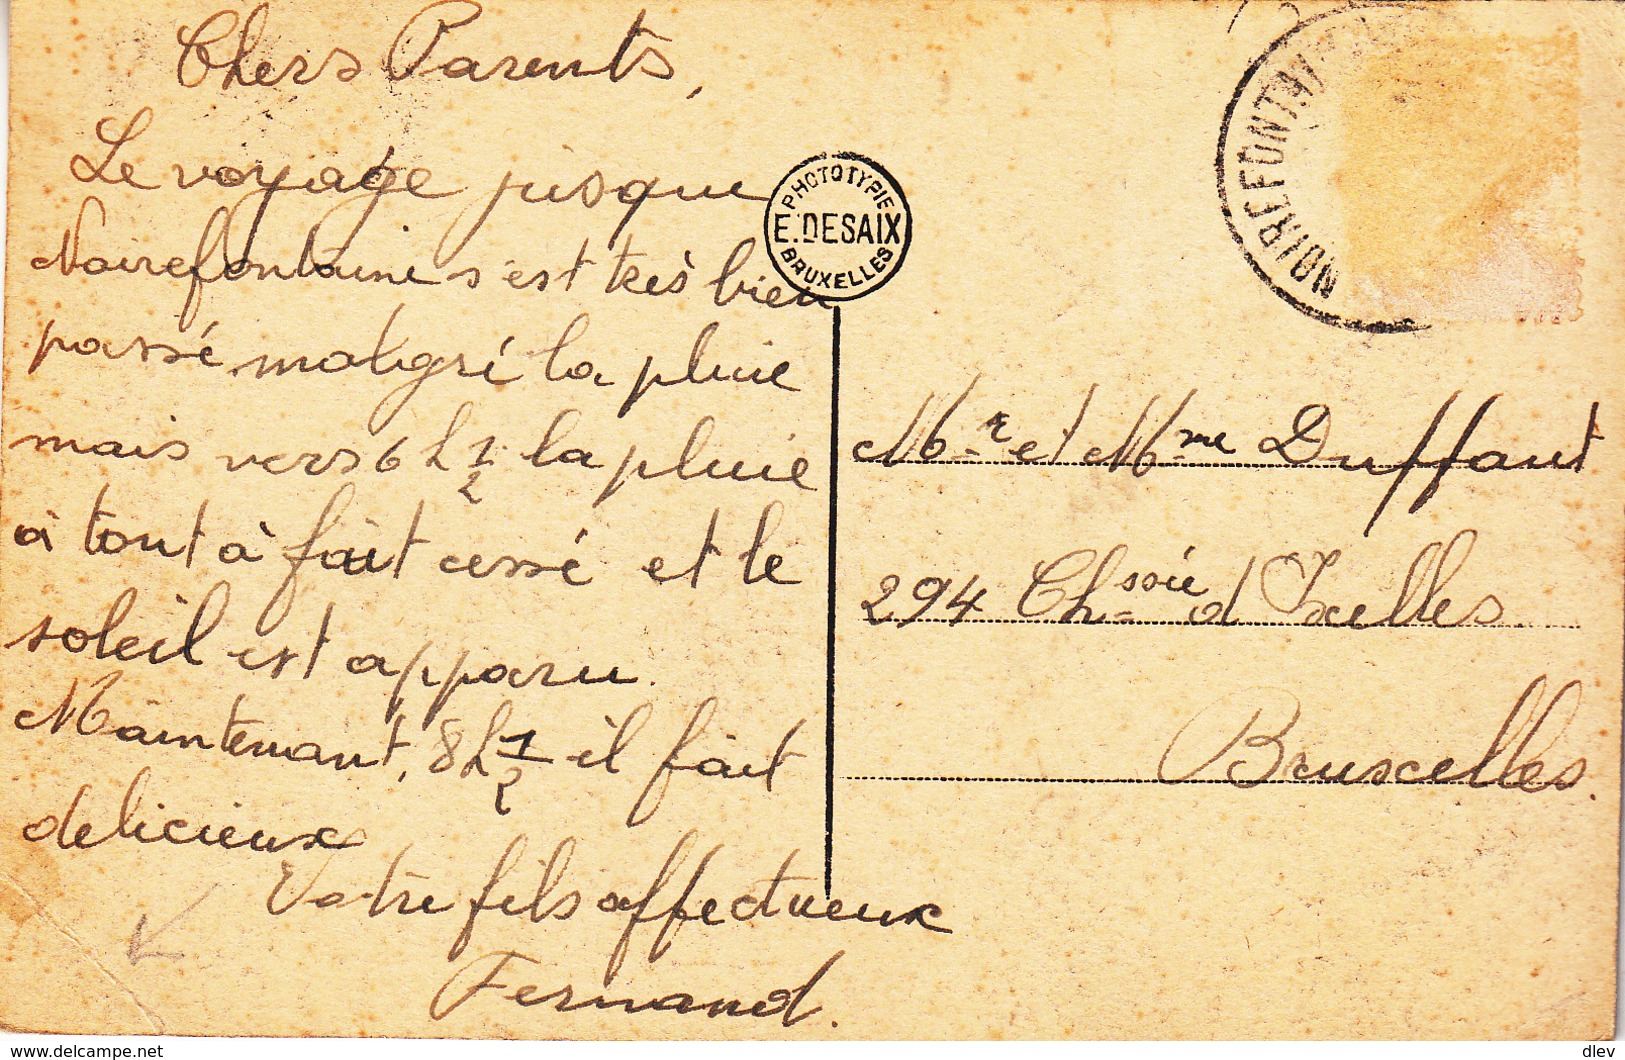 Chers Parents,
Le voyage jusque
Noirefontaine s'est très bien
passé malgré la pluie
mais vers 6 h 1/2 la pluie
à tout à fait cessé et le
soleil est apparu.
Maintenant, 8 h 1/2 il fait
delicieux
Votre fils affectueux
Fernand.
PHOTOTYPIE
E. DESAIX
BRUXELLES
NOIREFONTAI
Mr et Mme Duffaut
294 Chssée d Ixelles
Bruxelles.
www.delcampe.net
dlev